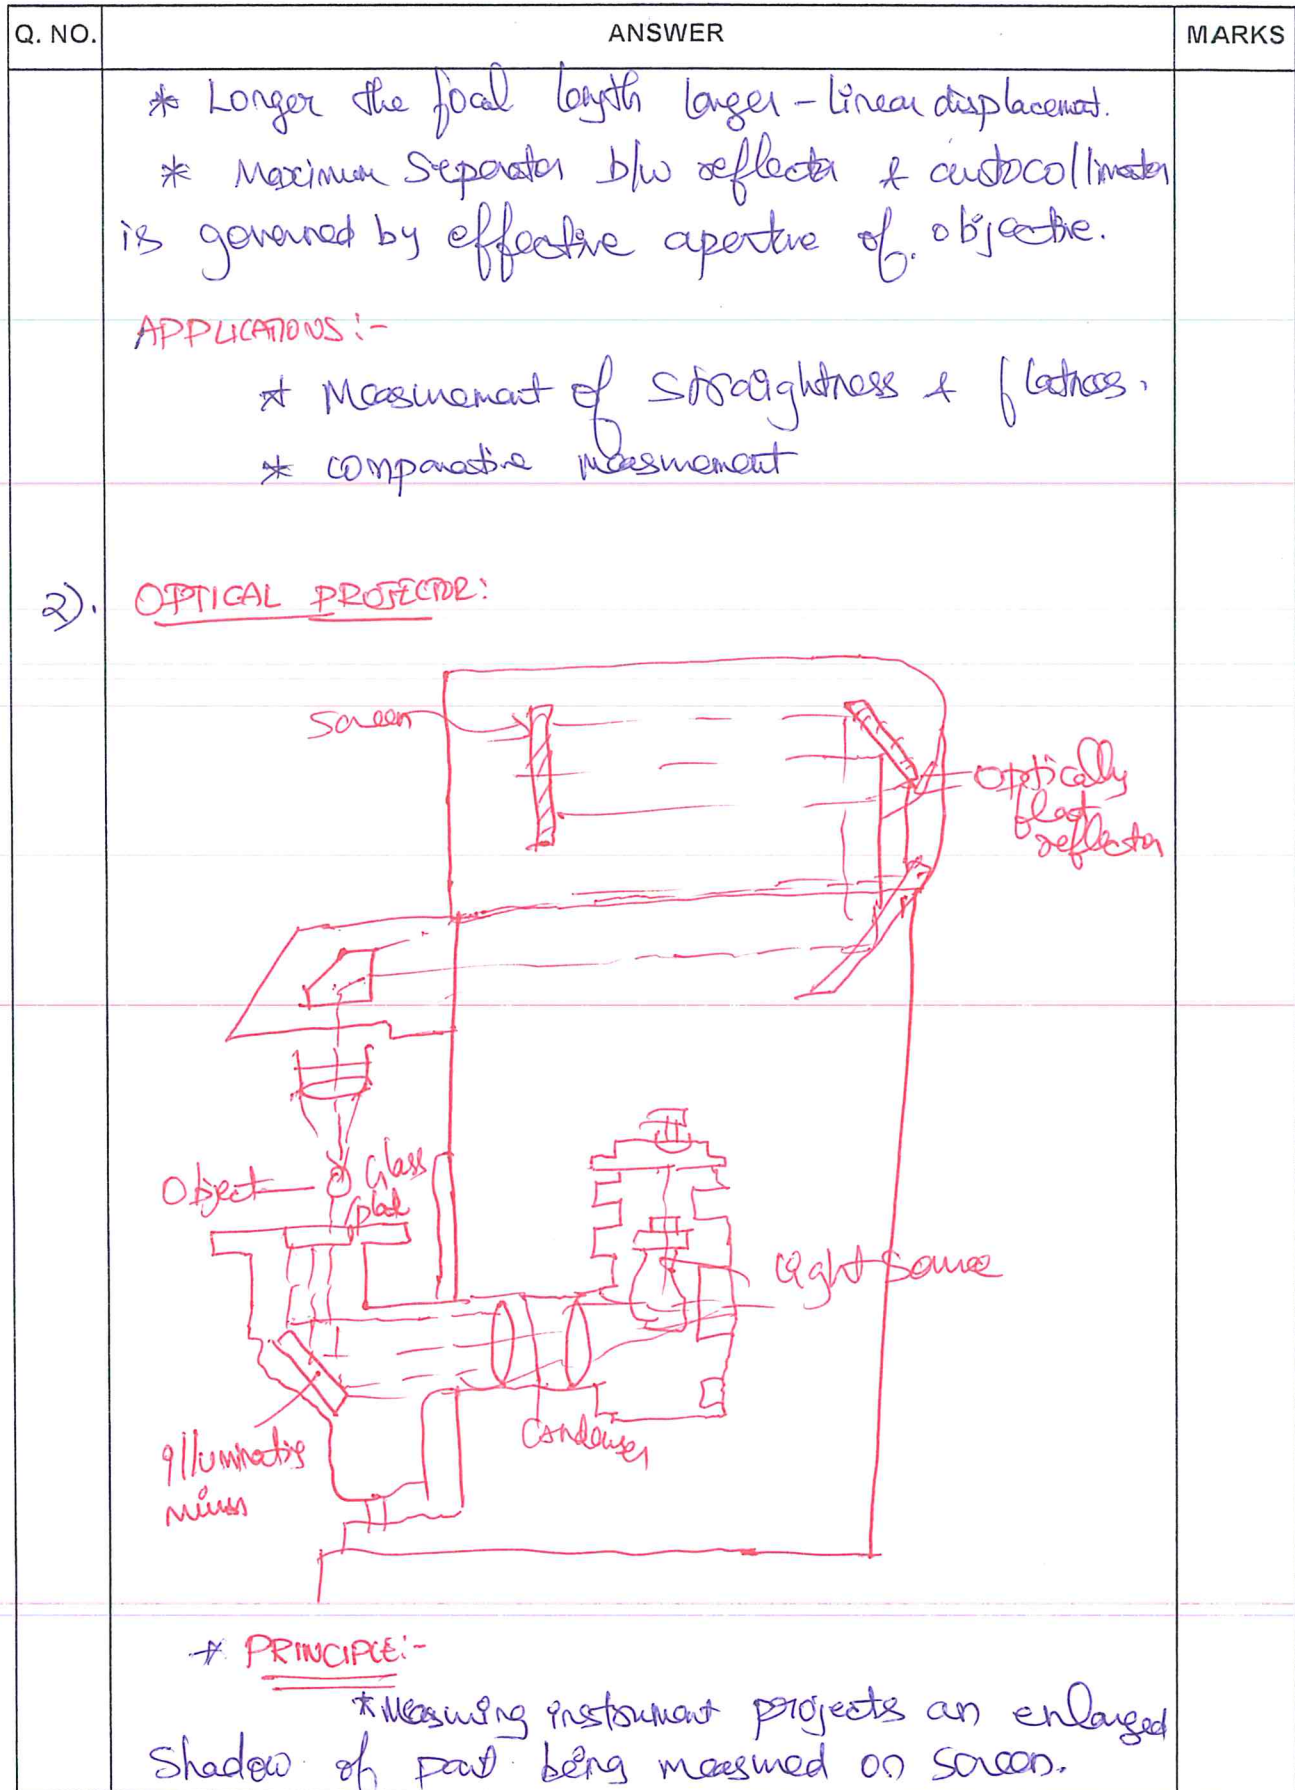 Q. NO. ANSWER MARKS
* Longer the focal length longer - linear displacement.
* Maximum Separator b/w reflector & autocollimator
is governed by effective aperture of objective.
APPLICATIONS:-
* Measurement of straightness & flatness.
* comparative measurement
2). OPTICAL PROJECTOR:
Screen
Optically
flat
reflector
Object
Glass
plate
Light Source
Condenser
Illuminating
mirror
* PRINCIPLE:-
* Measuring instrument projects an enlarged
Shadow of part being measured on screen.